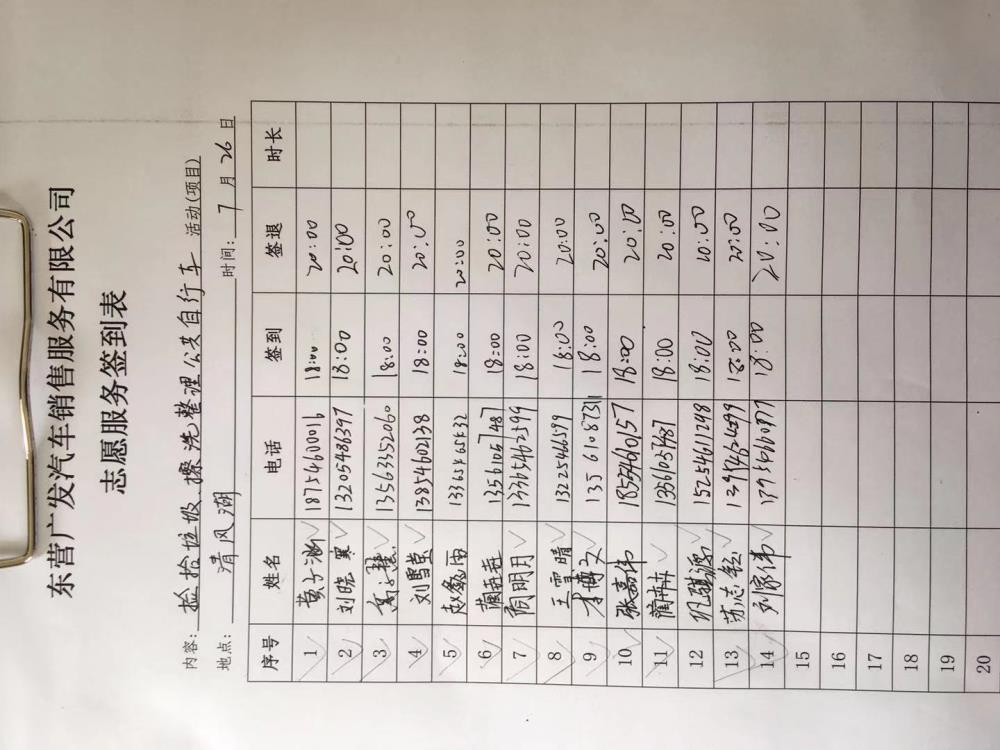 东营广发汽车销售服务有限公司
志愿服务签到表
内容: 捡拾垃圾、擦洗整理公共自行车 活动(项目)
地点: 清风湖 时间: 7 月 26 日
序号 姓名 电话 签到 签退 时长
1 黄子 18754600016 18:00 20:00
2 刘晓寒 13205486397 18:00 20:00
3 13563352060 18:00 20:00
4 刘雪莹 13854602138 18:00 20:00
5 赵鑫雨 18:00 20:00
6 蔺冉冉 13561057487 18:00 20:00
7 周明月 13365462599 18:00 20:00
8 王雪晴 13225466579 18:00 20:00
9 李博文 13561087311 18:00 20:00
10 张嘉伟 18554460157 18:00 20:00
11 蔺冉冉 13561057487 18:00 20:00
12 15254611298 18:00 20:00
13 苏志 18:00 20:00
14 刘家伟 18:00 20:00
15
16
17
18
19
20